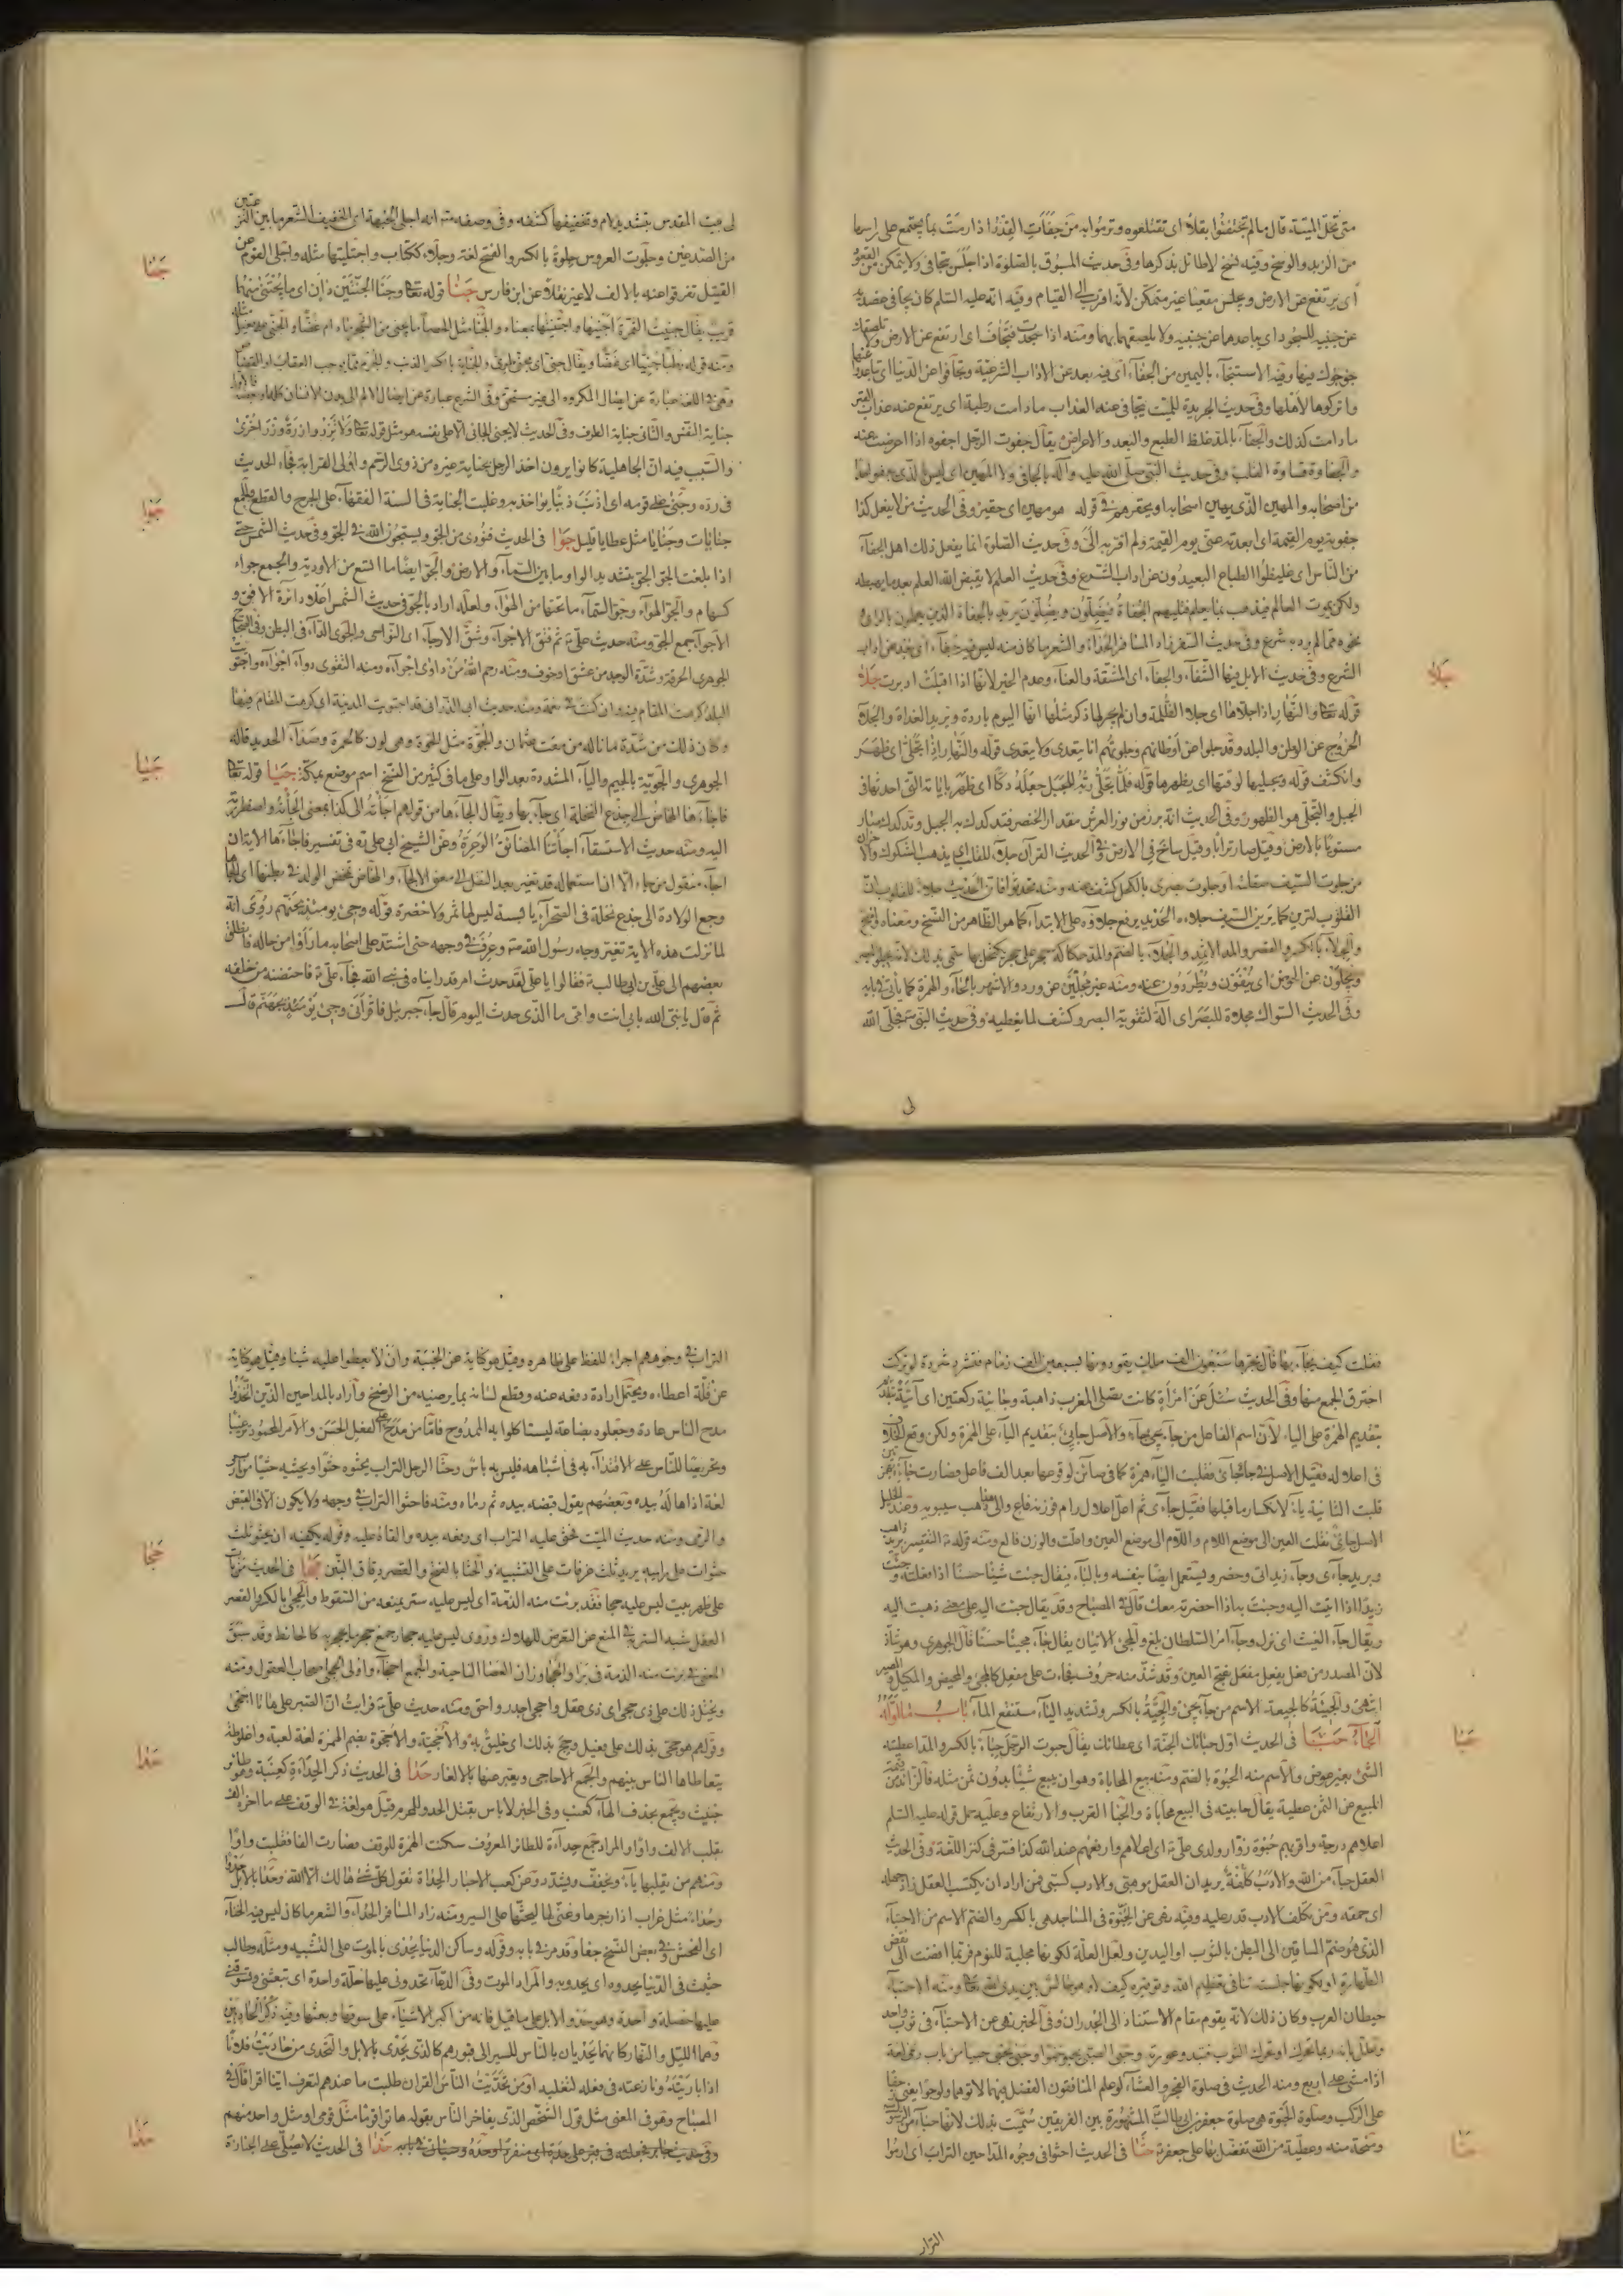 متى تحل الميتة قال ما لم تجتفئوا بقلا اى تقتلعوه وترموا به من جفات القدر اذا رمت بما يجتمع على راسها
من الزبد والوسخ وفيه نسخ لا طائل بذكرها وفى حديث المسبوق بالصلوة اذا جلس يتجافى ولا يتمكن من القعود
اى يرتفع عن الارض ويجلس مقعيا غير متمكن لانه اقرب الى القيام وفيه انه عليه السلم كان يجافى عضديه
عن جنبيه للسجود اى يباعدهما عن جنبيه ولا يلصقهما بهما ومنه اذا سجدت فتجاف اى ارتفع عن الارض ولا تلصق
جؤجؤك فيها وفيه الاستنجاء باليمين من الجفاء اى فيه بعد عن الاداب الشرعية وتجافوا عن الدنيا اى تباعدوا عنها
واتركوها لاهلها وفى حديث الجريدة للميت يتجافى عنه العذاب ما دامت رطبة اى يرتفع عنه عذاب القبر
ما دامت كذلك والجفاء بالمد غلظ الطبع والبعد والاعراض يقال جفوت الرجل اجفوه اذا اعرضت عنه
والجفا وقساوة القلب وفى حديث النبى صلى الله عليه وآله ليس بالجافى ولا المهين اى ليس بالذى يجفو
من اصحابه والمهين الذى يهين اصحابه او يحقرهم فى قوله هو مهين اى حقير وفى الحديث من لا يفعل كذا
جفوته يوم القيمة اى ابعدته عنى يوم القيمة ولم اقربه الى وفى حديث الصلوة انما يفعل ذلك اهل الجفاء
من الناس اى غليظوا الطباع البعيدون عن اداب الشرع وفى حديث العلم لا يقبض الله العلم بعد ما يهبطه
ولكن يموت العالم فيذهب بما يعلم فتليهم الجفاة فيضلون ويضلون يريد بالجفاة الذين يعملون بالراى
نحوه مما لم يرد به شرع وفى حديث السفر زاد المسافر الحداء والشعر ما كان منه ليس فيه جفاء اى بعد عن اداب
الشرع وفى حديث الابل فيها الشقاء والجفاء اى المشقة والعناء وعدم الخير لانها اذا اقبلت ادبرت جلا
قوله تعالى والنهار اذا جلاها اى جلا الظلمة وان لم يجر لها ذكر مثلها انها اليوم باردة ويريد الغداة والجلاء
الخروج عن الوطن والبلد وقد جلوا عن اوطانهم وجلوتهم انا يتعدى ولا يتعدى قوله والنهار اذا تجلى اى ظهر
وانكشف قوله ويجليها لوقتها اى يظهرها قوله فلما تجلى ربه للجبل جعله دكا اى ظهر باياته التى احدثها فى
الجبل والتجلى هو الظهور وفى الحديث انه برز من نور العرش مقدار الخنصر فتدكدك به الجبل وتدكدك صار
مستويا بالارض وقيل صار ترابا وقيل ساخ فى الارض وفى الحديث القران جلاء للقلب اى يذهب الشكوك والاحزان
من جلوت السيف صقلته او جلوت بصرى بالكحل كشفت عنه ومنه تحدثوا فان الحديث جلاء للقلوب ان
القلوب لترين كما يرين السيف جلاءه الحديد برفع جلاءه على الابتداء كما هو الظاهر من النسخ ومعناه واضح
والجلاء بالكسر والقصر والمد الاثمد والجلاء بالضم والمد حكاكة حجر على حجر يكتحل بها سمى بذلك لانه يجلو البصر
ويجلون عن الحوض اى ينفون ويطردون عنه ومنه غير مجلين عن ورد والاشهر بالحاء والهمزة كما يأتى فى بابه
وفى الحديث السواك مجلاة للبصر اى آلة لتقوية البصر وكشف لما يغطيه وفى حديث النبى ص فجلى الله
لى
جلا
لى بيت المقدس بتشديد لام وتخفيفها كشفه وفى وصفه ص انه اجلى الجبهة اى الخفيف الشعر ما بين النزعتين
من الصدغين وجلوت العروس جلوة بالكسر والفتح لغة وجلاء ككتاب واجتليتها مثله واجلى القوم عن
القتيل تفرقوا عنه بالالف لا غير نقلا عن ابن فارس جنا قوله تعالى وجنا الجنتين دان اى ما يجتنى منهما
قريب يقال جنيت الثمرة اجنيها واجتنيتها بمعناه والجنا مثل الحصا ما يجنى من الشجر ما دام غضا والجنى مثله
ومنه قوله رطبا جنيا اى غضا ويقال جنى اى مجنى طرى والجناية بالكسر الذنب والجرم مما يوجب العقاب او القصاص
وهى فى اللغة عبارة عن ايصال المكروه الى غير مستحق وفى الشرع عبارة عن ايصال الالم الى بدن الانسان كله او بعضه فالاول
جناية النفس والثانى جناية الطرف وفى الحديث لا يجنى الجانى الا على نفسه هو مثل قوله تعالى ولا تزر وازرة وزر اخرى
والسبب فيه ان الجاهلية كانوا يرون اخذ الرجل بجناية غيره من ذوى الرحم واولى القرابة فجاء الحديث
فى رده وجنى على قومه اى اذنب ذنبا يؤاخذ به وغلبت الجناية فى السنة الفقهاء على الجرح والقطع والجمع
جنايات وجنايا مثل عطايا قليل جوا فى الحديث فنودى من الجو وليستجون الله فى الجو وفى حديث الشمس حتى
اذا بلغت الجو الجو بتشديد الواو ما بين السماء والارض والجو ايضا ما اتسع من الاودية والجمع جواء
كسهام والجو الهواء وجو السماء ما تحتها من الهواء ولعله اراد بالجو فى حديث الشمس اعلا دائرة الافق و
الاجواء جمع الجو ومنه حديث على ع ثم فتق الاجواء وشق الارجاء اى النواحى والجوى الداء فى البطن وفى الصحاح
الجوهرى الحرقة وشدة الوجد من عشق او خوف ومنه رحم الله من داوى اجواءه ومنه التقوى دواء اجواءه واجتويت
البلد كرهت المقام فيه وان كنت فى نعمة ومنه حديث ابى الذر انى قد اجتويت المدينة اى كرهت المقام فيها
وكان ذلك من شدة ما ناله من بعث عثمان والجؤة مثل الحوة وهى لون كالحمرة وصداء الحديد قاله
الجوهرى والجوية بالجيم والياء المشددة بعد الواو على ما فى كثير من النسخ اسم موضع بمكة جيا قوله تعالى
فاجاءها المخاض الى جذع النخلة اى جاء بها ويقال الجاءها من قولهم اجأته الى كذا بمعنى الجأته واضطررته
اليه ومنه حديث الاستسقاء اجاءتنا المضائق الوعرة وعن الشيخ ابى على ره فى تفسير فاجاءها الايتان
اجاء منقول من جاء الا ان استعماله قد تغير بعد النقل الى معنى الالجاء والمخاض تمخض الولد فى بطنها اى الجأها
وجع الولادة الى جذع نخلة فى الصحراء يابسة ليس لها ثمر ولا خضرة قوله وجىء يومئذ بجهنم روى انه
لما نزلت هذه الاية تغير وجه رسول الله ص وعرف فى وجهه حتى اشتد على اصحابه ما راوا من حاله فانطلق
بعضهم الى على بن ابى طالب ع فقالوا يا على لقد حدث امر قد رايناه فى نبى الله فجاء على ع فاحتضنه من خلفه
ثم قال يا نبى الله بابى انت وامى ما الذى حدث اليوم قال جاء جبريل فاقرأنى وجىء يومئذ بجهنم قال
جنا
جوا
جيا
فقلت كيف يجاء بها قال يجرها سبعون الف ملك يقودونها بسبعين الف زمام فتشرد شردة لو تركت
احترق الجمع منها وفى الحديث سئل عن امراة كانت تصلى المغرب ذاهبة وجائية ركعتين اى آتية
بتقديم الهمزة على الياء لان اسم الفاعل من جاء يجىء جاء والاصل جايئ بتقديم الياء على الهمزة ولكن وقع الخلاف
فى اعلاله فقيل الاصل فى جاء جائئ فقلبت الياء همزة كما فى صائن لوقوعها بعد الف فاعل وصارت جاءء
قلبت الثانية ياء لانكسار ما قبلها فقيل جاءى ثم اعل اعلال رام فوزنه فاع والى هذا ذهب سيبويه وعند الخليل
الاصل جائئ نقلت العين الى موضع اللام واللام الى موضع العين واعلت والوزن فالع ومنه قوله ع التقصير بريد ذاهب
وبريد جاءى وجاء زيد اتى وحضر ويستعمل ايضا بنفسه وبالباء فيقال جئت شيئا حسنا اذا فعلته وجئت
زيدا اذا اتيت اليه وجئت به اذا احضرته معك قال فى المصباح وقد يقال جئت اليه على معنى ذهبت اليه
ويقال جاء الغيث اى نزل وجاء امر السلطان بلغ والمجىء الاتيان يقال جاء مجيئا حسنا قال الجوهرى وهو شاذ
لان المصدر من فعل يفعل مفعل بفتح العين وقد شذت منه حروف فجاءت على مفعل كالمجىء والمحيض والمكيل والمصير
انتهى والجيئة كالجيعة الاسم من جاء يجىء والجية بالكسر وتشديد الياء مستنقع الماء باب ما اوله
الحاء حبا فى الحديث اول حبائك الجنة اى عطائك يقال حبوت الرجل حباء بالكسر والمد اعطيته
الشىء بغير عوض والاسم منه الحبوة بالضم ومنه بيع المحاباة وهو ان يبيع شيئا بدون ثمن مثله فالزائد من قيمة
المبيع عن الثمن عطية يقال حابيته فى البيع محاباة والحبا القرب والارتفاع وعليه حمل قوله عليه السلم
اعلاهم درجة واقربهم حبوة زوار ولدى على ع اى اعلاهم وارفعهم عند الله كذا فسر فى كنز اللغة وفى الحديث
العقل حباء من الله والادب كلفة يريد ان العقل موهبى والادب كسبى فمن اراد ان يكتسب العقل زاد جهله
اى حمقه ومن تكلف الادب قدر عليه وفيه نهى عن الحبوة فى المساجد هى بالكسر والضم الاسم من الاحتباء
الذى هو ضم الساقين الى البطن بالثوب او اليدين ولعل العلة لكونها مجلبة للنوم فربما افضت الى نقض
الطهارة او لكونها جلسة تنافى تعظيم الله وتوقيره كيف لا وهو جالس بين يدى الله تعالى ومنه الاحتباء
حيطان العرب وكان ذلك لانه يقوم مقام الاستناد الى الجدران وفى الخبر نهى عن الاحتباء فى ثوب واحد
وعلل بانه ربما تحرك او تحرك الثوب فتبدو عورته وحبى الصبى يحبو حبوا وحبى يحبى حبيا من باب رمى لغة
اذا مشى على اربع ومنه الحديث فى صلوة الفجر والعشاء لو علم المنافقون الفضل فيهما لاتوهما ولو حبوا يعنى زحفا
على الركب وصلوة الحبوة هى صلوة جعفر بن ابى طالب المشهورة بين الفريقين سميت بذلك لانها حباء من الرسول
ومنحة منه وعطية من الله تفضل بها على جعفر ع حثا فى الحديث احثوا فى وجوه المداحين التراب اى ارموا
الترا
حبا
حثا
التراب فى وجوههم اجراء للفظ على ظاهره وقيل هو كناية عن الخيبة وان لا يعطوا عليه شيئا وقيل هو كناية
عن قلة اعطاءه ويحتمل ارادة دفعه عنه وقطع لسانه بما يرضيه من الرضخ واراد بالمداحين الذين اتخذوا
مدح الناس عادة وجعلوه بضاعة ليستاكلوا به الممدوح فاما من مدح على الفعل الحسن والامر المحمود ترغيبا
وتحريضا للناس على الاقتداء به فى اشباهه فليس به باس وحثا الرجل التراب يحثوه حثوا ويحثيه حثيا من باب رمى
لغة اذا هاله بيده وبعضهم يقول قبضه بيده ثم رماه ومنه فاحثوا التراب فى وجهه ولا يكون الا فى القبض
والرمى ومنه حديث الميت فحثى عليه التراب اى رفعه بيده والقاه عليه وقوله يكفيه ان يحثو ثلث
حثوات على راسه يريد ثلث غرفات على التشبيه والحثا بالفتح والقصر دقاق التبن حجا فى الحديث من بات
على ظهر بيت ليس عليه حجا فقد برئت منه الذمة اى ليس عليه ستر يمنعه من السقوط والحجى بالكسر والقصر
العقل شبه الستر به فى المنع عن التعرض للهلاك وروى ليس عليه حجار جمع حجر ما يحجر به كالحائط وقد سبق
المعنى فى برئت منه الذمة فى برا والحجا وزان العصا الناحية والجمع احجاء واولى الحجى اصحاب العقول ومنه
ويحتمل ذلك على ذى حجى اى ذى عقل واحجى اجدر واحق ومنه حديث على ع فرايت ان الصبر على هاتا احجى
وقولهم هو حجى بذلك على فعيل وحج بذلك اى خليق به والاحجية والاحجوة بضم الهمزة لغة لعبة واغلوطة
يتعاطاها الناس بينهم والجمع الاحاجى ويعبر عنها بالالغاز حدا فى الحديث ذكر الحداءة كعنبة وهو طائر
خبيث ويجمع بحذف الهاء كعنب وفى الخبر لا باس بقتل الحدو للمحرم قيل هو لغة فى الوقف على ما اخره الف
بقلب الالف واوا والمراد جمع حداءة للطائر المعروف سكنت الهمزة للوقف فصارت الفا فقلبت واوا
ومنهم من يقلبها ياء ويخفف ويشدد وعن كعب الاحبار الحداة تقول كل شئ هالك الا الله وحدا بالابل حدوا
وحداء مثل غراب اذا زجرها وغنى لها ليحثها على السير ومنه زاد المسافر الحداء والشعر ما كان ليس فيه الخناء
اى الفحش وفى بعض النسخ جفا وقد مر فى بابه وقوله وساكن الدنيا يحدى بالموت على التشبيه ومثله وطالب
حثيث فى الدنيا يحدوه اى يحدو به والمراد الموت وفى الدعاء تحدونى عليها خلة واحدة اى تبعثنى وتسوقنى
عليها خصلة واحدة وهو من حدو الابل على ما قيل فانه من اكبر الاشياء على سوقها وبعثها وفيه ذكر الحاديين
وهما الليل والنهار كانهما يحديان بالناس للسير الى قبورهم كالذى يحدى بالابل والتحدى من حاديت فلانا
اذا باريته ونازعته فى فعله لتغلبه او من تحديت الناس القران طلبت ما عندهم لتعرف ايّنا اقرا قال فى
المصباح وهو فى المعنى مثل قول الشخص الذى يفاخر الناس بقوله هاتوا قوما مثل قومى او مثل واحد منهم
وفى حديث جابر فجعلته فى قبر على حدة اى منفردا وحده حذا فى الحديث لا يصلى على الجنازة
حجا
حدا
حذا